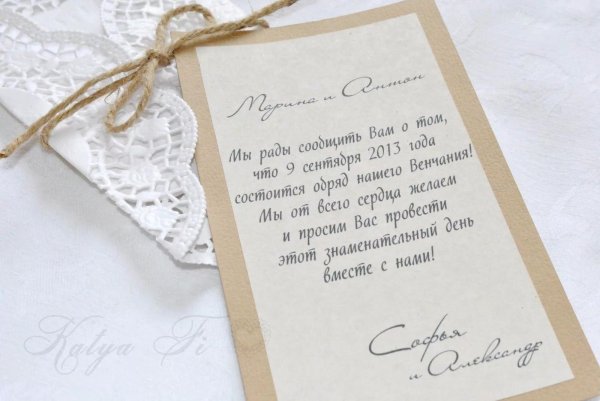 Марина и Антон
Мы рады сообщить Вам о том,
что 9 сентября 2013 года
состоится обряд нашего Венчания!
Мы от всего сердца желаем
и просим Вас провести
этот знаменательный день
вместе с нами!
Софья
и Александр
Katya Fi